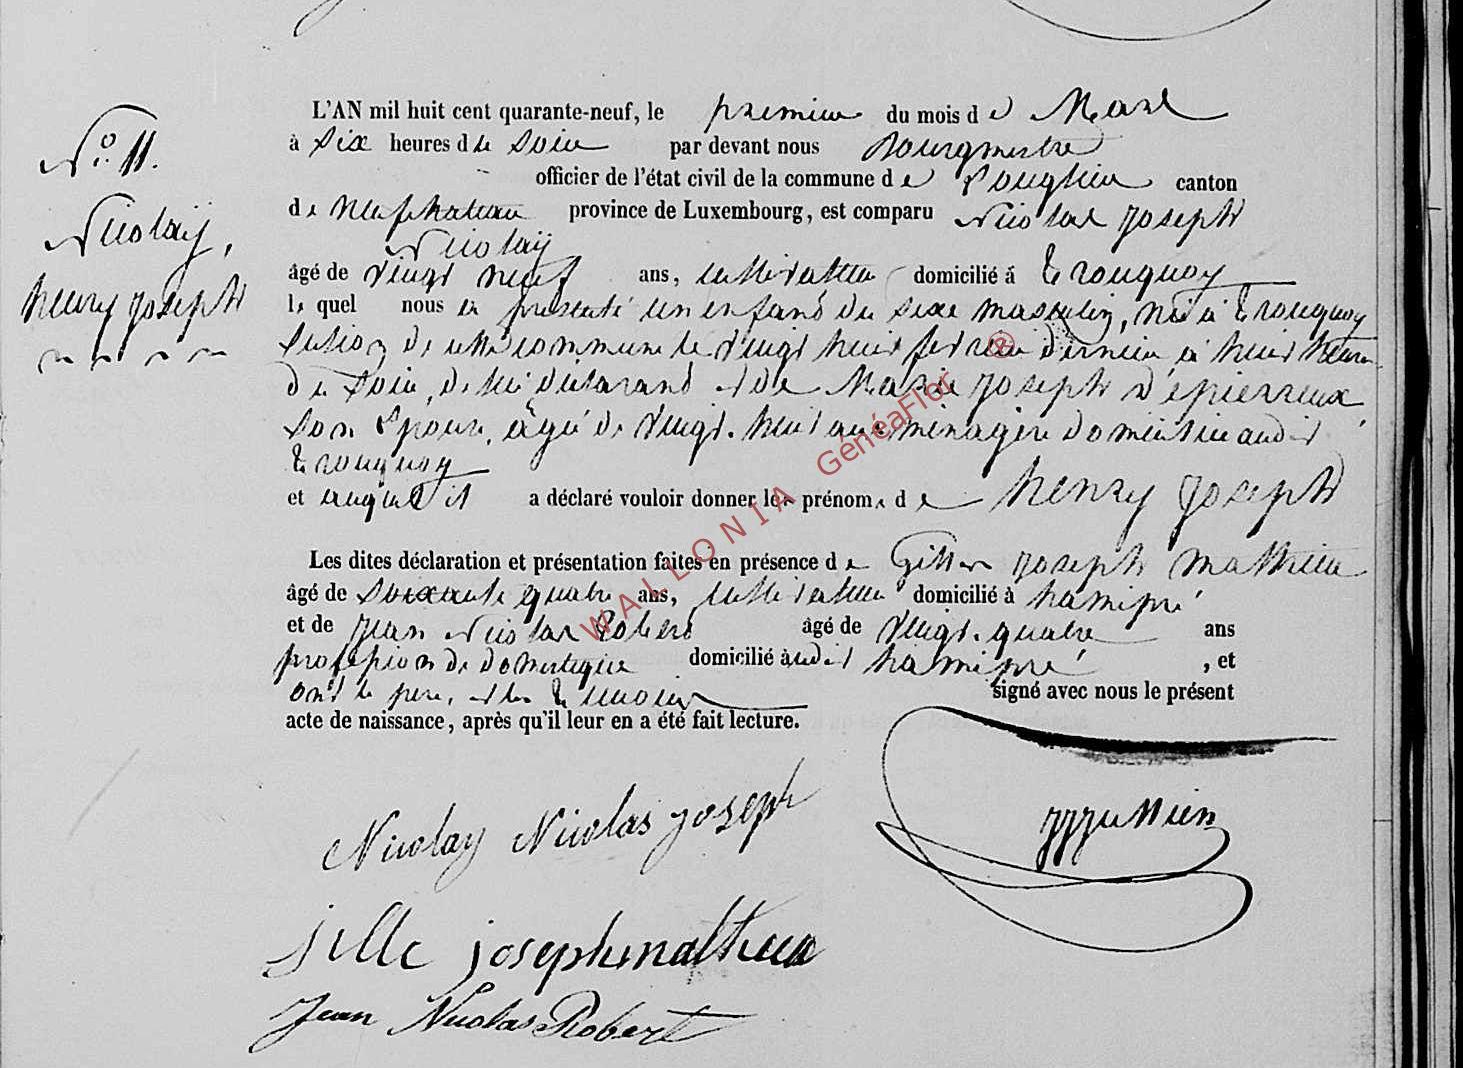 L'AN mil huit cent quarante-neuf, le premier du mois de Mars
N.° 11.
à six heures du soir par devant nous Bourgmestre
officier de l'état civil de la commune de Longlier canton
de Neufchateau province de Luxembourg, est comparu Nicolas Joseph
Nicolaÿ,
Nicolaÿ
âgé de vingt neuf ans, cultivateur domicilié à Tronquoy
henry joseph
lequel nous a présenté un enfant du sexe masculin, né à Tronquoy
section de cette commune le vingt huit fevrier dernier à huit heures
du soir, de lui déclarant et de Marie Joseph Dépierreux
son Epouse, âgée de vingt-huit ans ménagère domiciliée audit
Tronquoy
et auquel il a déclaré vouloir donner les prénoms de henry Joseph
Les dites déclaration et présentation faites en présence de Gille Joseph Mathieu
âgé de soixante quatre ans, cultivateur domicilié à hamipré
et de Jean Nicolas Robert âgé de vingt-quatre ans
profession de domestique domicilié audit hamipré, et
ont le père, et les témoins signé avec nous le présent
acte de naissance, après qu'il leur en a été fait lecture.
Nicolay Nicolas joseph
jille joseph mathieu
Jean Nicolas Robert
WALLONIA GénéaFlor ®